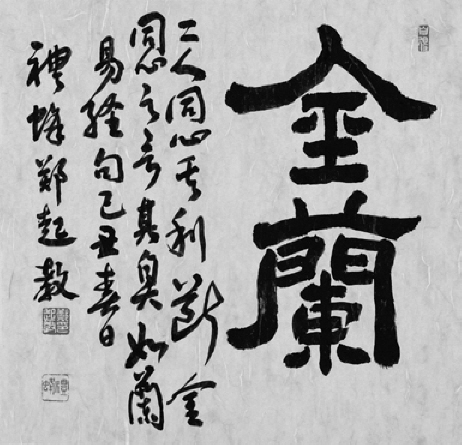 金蘭
二人同心其利斷金
同心之言其臭如蘭
易経句己丑春日
禮峰鄭起教